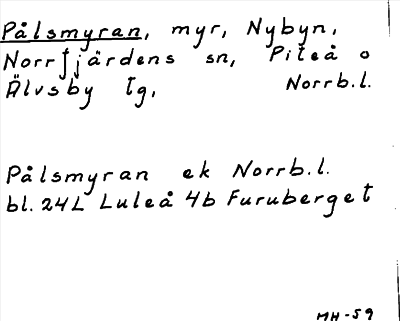 Pålsmyran, myr, Nybyn,
Norrfjärdens sn, Piteå o
Älvsby tg, Norrb.l.
Pålsmyran ek Norrb.l.
bl. 24L Luleå 4b Furuberget
MH-59